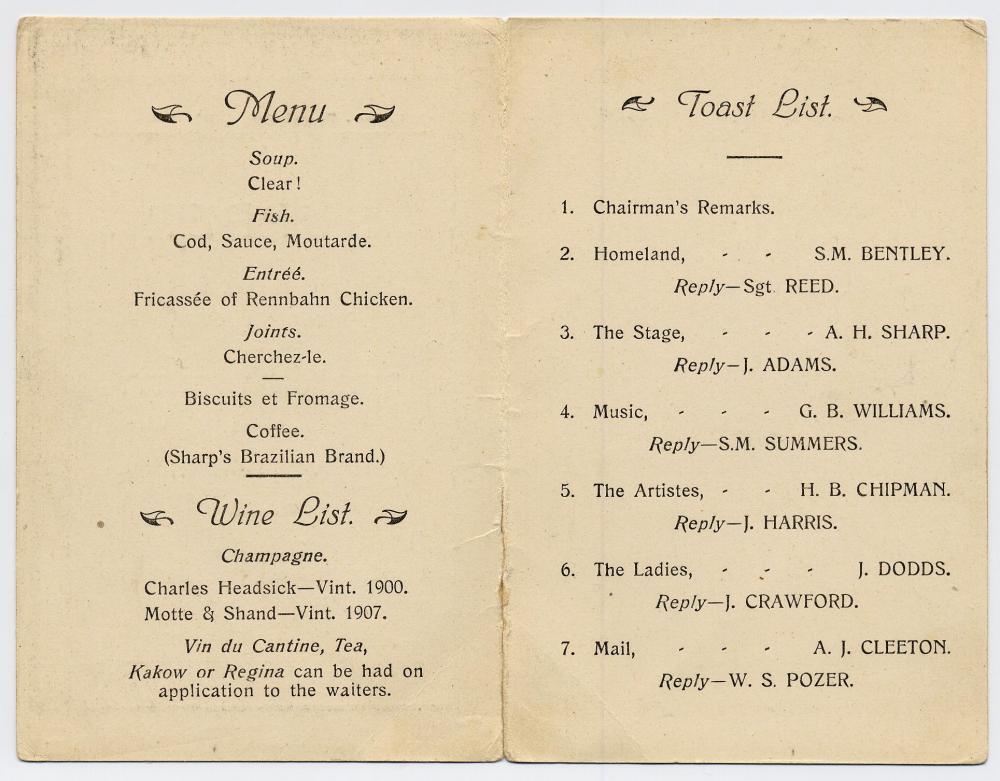 Menu
Soup.
Clear!
Fish.
Cod, Sauce, Moutarde.
Entréé.
Fricassée of Rennbahn Chicken.
Joints.
Cherchez-le.
Biscuits et Fromage.
Coffee.
(Sharp's Brazilian Brand.)
Wine List.
Champagne.
Charles Headsick—Vint. 1900.
Motte & Shand—Vint. 1907.
Vin du Cantine, Tea,
Kakow or Regina can be had on
application to the waiters.
Toast List.
1. Chairman's Remarks.
2. Homeland, - - S.M. BENTLEY.
Reply—Sgt. REED.
3. The Stage, - - - A. H. SHARP.
Reply—J. ADAMS.
4. Music, - - - G. B. WILLIAMS.
Reply—S.M. SUMMERS.
5. The Artistes, - - H. B. CHIPMAN.
Reply—J. HARRIS.
6. The Ladies, - - - J. DODDS.
Reply—J. CRAWFORD.
7. Mail, - - - A. J. CLEETON.
Reply—W. S. POZER.